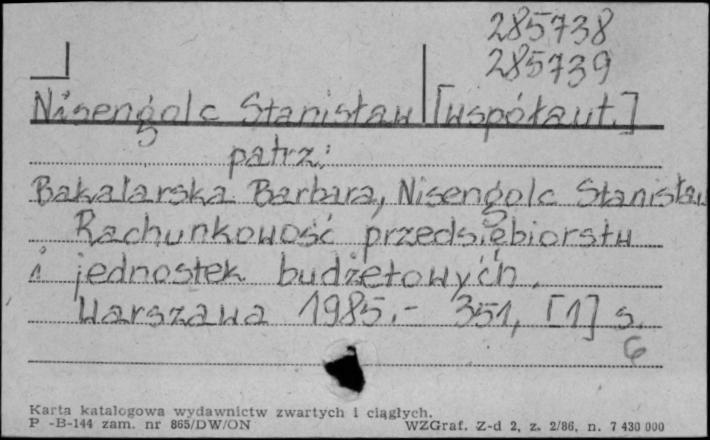 285738
285739
Nisengolc Stanisław [współaut.]
patrz:
Bakalarska Barbara, Nisengolc Stanisław
Rachunkowość przedsiębiorstw
i jednostek budżetowych.
Warszawa 1985.- 351, [1] s.
6
Karta katalogowa wydawnictw zwartych i ciągłych.
P -B-144 zam. nr 865/DW/ON WZGraf. Z-d 2, z. 2/86, n. 7 430 000